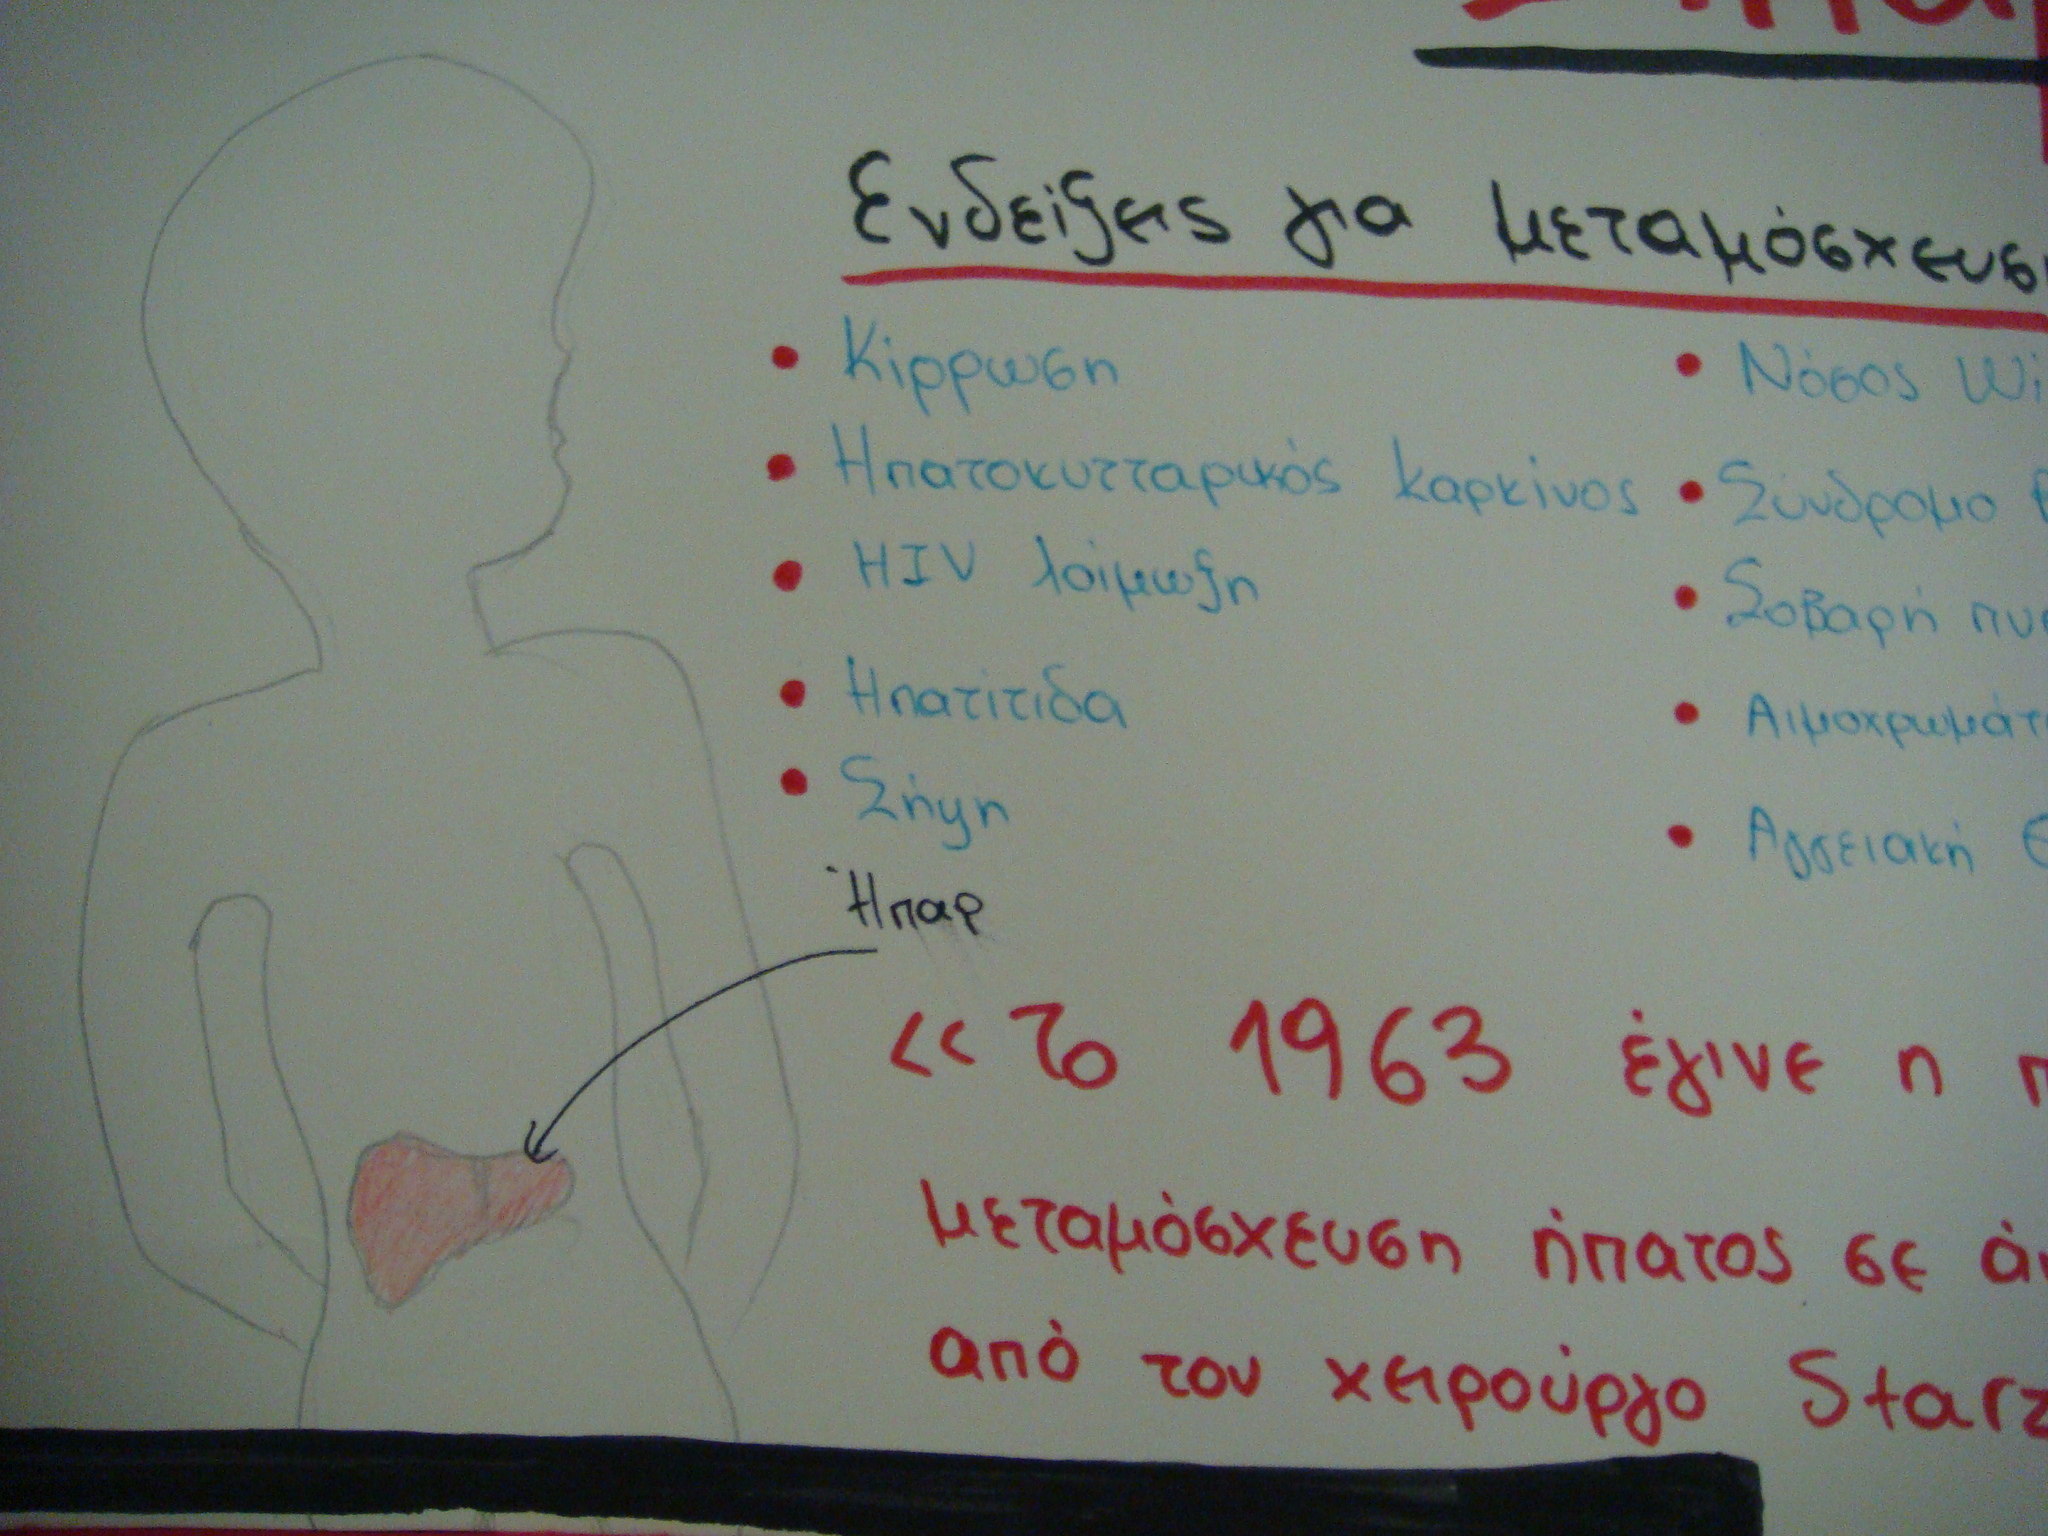 Ενδείξεις για μεταμόσχευσ
• Κίρρωση
• Ηπατοκυτταρικός καρκίνος
• HIV λοίμωξη
• Ηπατίτιδα
• Σήψη
• Νόσος Wi
• Σύνδρομο
• Σοβαρή πυ
• Αιμοχρωμάτ
• Αγγειακή
Ήπαρ
<< Το 1963 έγινε η π
μεταμόσχευση ήπατος σε ά
από τον χειρούργο Starz